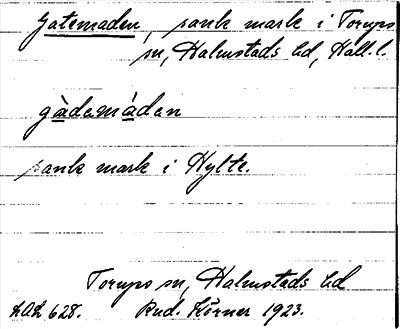 Gatemaden, sank mark i Torups
sn, Halmstads hd, Hall. l.
gàdamàdan
sank mark i Hylte.
Torups sn, Halmstads hd
KLK 628. Rud. Körner 1923.